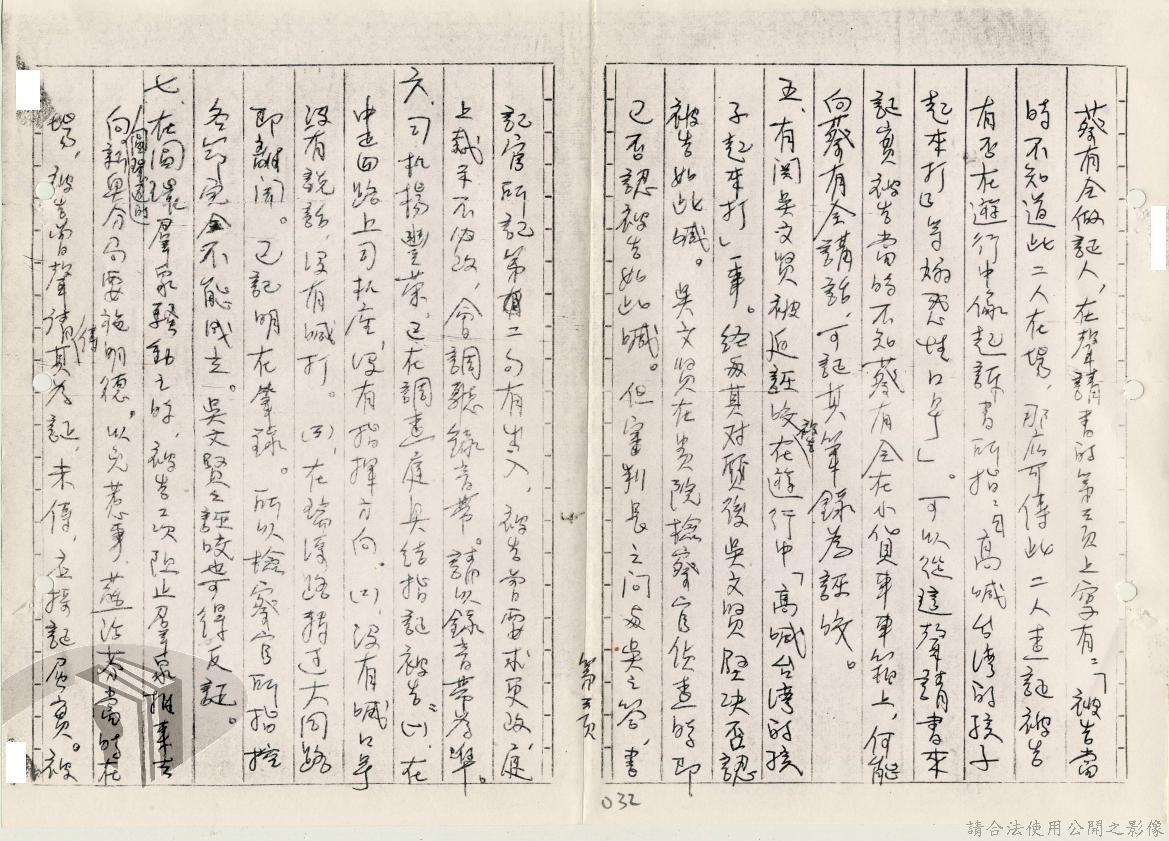 蔡有全做証人,在聲請書的第三頁上寫有:「被告當
時不知道此二人在場,那后可傳此二人查証被告
有否在遊行中像起訴書所指:高喊台湾的孩子
起來打口号煽惑性口号」。可以從這聲請書來
証實被告當時不知蔡有全在小貨車車箱上,何能
向蔡有全講話,可証其筆錄為誣攀。
五、有関吳文贤被迫誣攀在遊行中「高喊台湾的孩
子起來打」一事。經與其对質後吳文贤堅决否認
被告如此喊。吳文贤在貴院檢察官侦查時即
已否認被告如此喊。但審判長之问與吳之答,書
第三頁
記官所記第 二句有出入,被告曾要求更改,庭
上裁示不必改,會調聽錄音帶。請以錄音帶為準。
六、司机楊豐榮,已在調查庭具结指証被告:㈠、在
中正四路上司机座,没有指揮方向。㈡、没有喊口号
没有說話,没有喊打。㈢、在瑞源路轉过大同路
即離開。已記明在筆錄。所以檢察官所指控
各節完全不能成立。吳文贤之誣攀也可得反証。
七、在圓環羣眾騷動之時,被告二次阻止羣眾推車去
向新興分局要施明德。以免惹事,蘇治芬當時在
場,被告曾聲請傳其為証,未傳,應接証屬實。被
032
請合法使用公開之影像